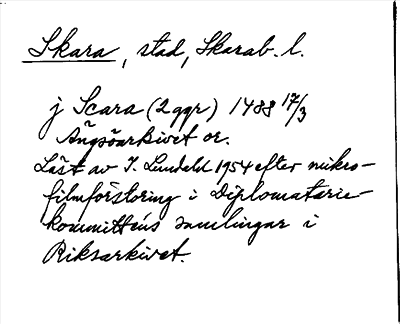 Skara, stad, Skarab. l.
j Scara (2 ggr) 1488 17/3
Ängsöarkivet or.
Läst av I. Lundahl 1954 efter mikro-
filmförstoring i Diplomatarie-
kommitténs samlingar i
Riksarkivet.